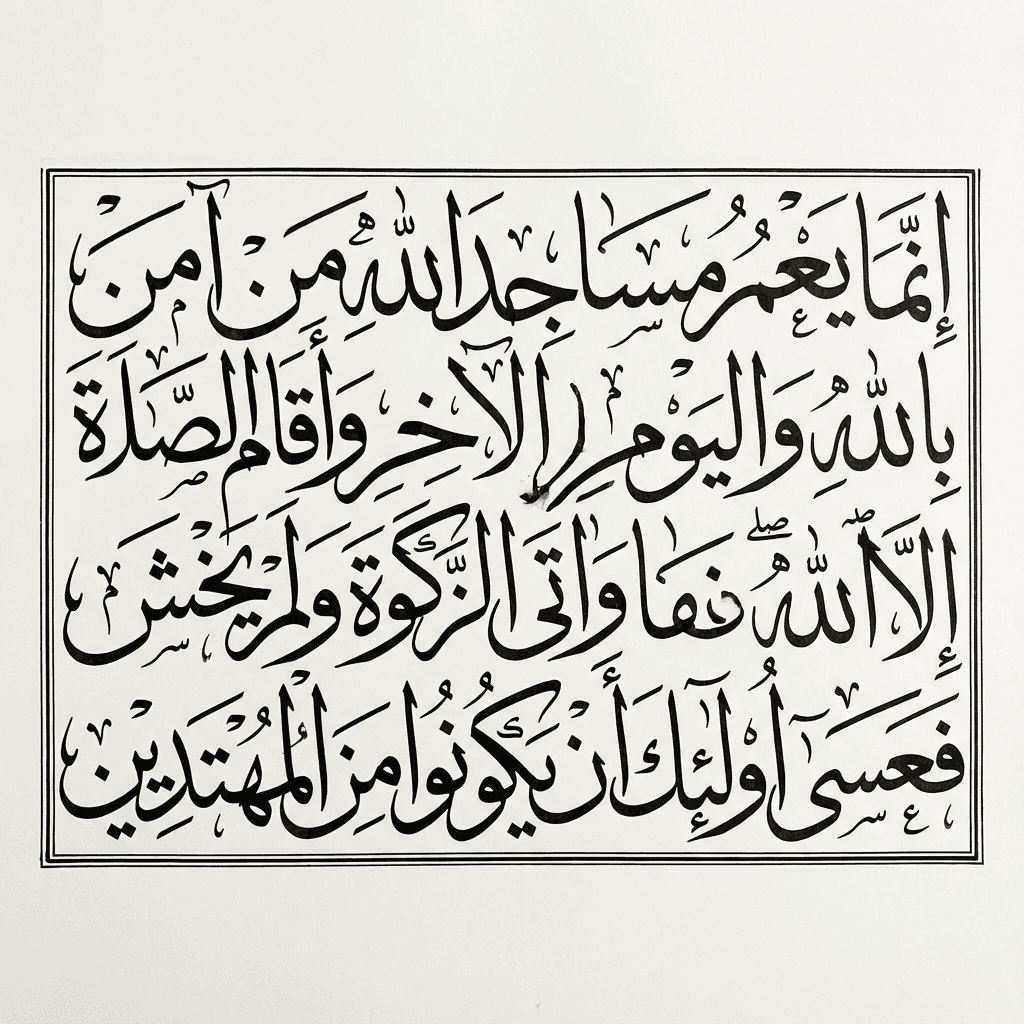 إِنَّمَا يَعْمُرُ مَسَاجِدَ اللّٰهِ مَنْ آمَنَ
بِاللّٰهِ وَالْيَوْمِ الْآخِرِ وَأَقَامَ الصَّلَاةَ
إِلَّا اللّٰهَ وَاتَى الزَّكَوةَ وَلَمْ يَخْشَ
فَعَسَى أُولَئِكَ أَنْ يَكُونُوا مِنَ الْمُهْتَدِينَ